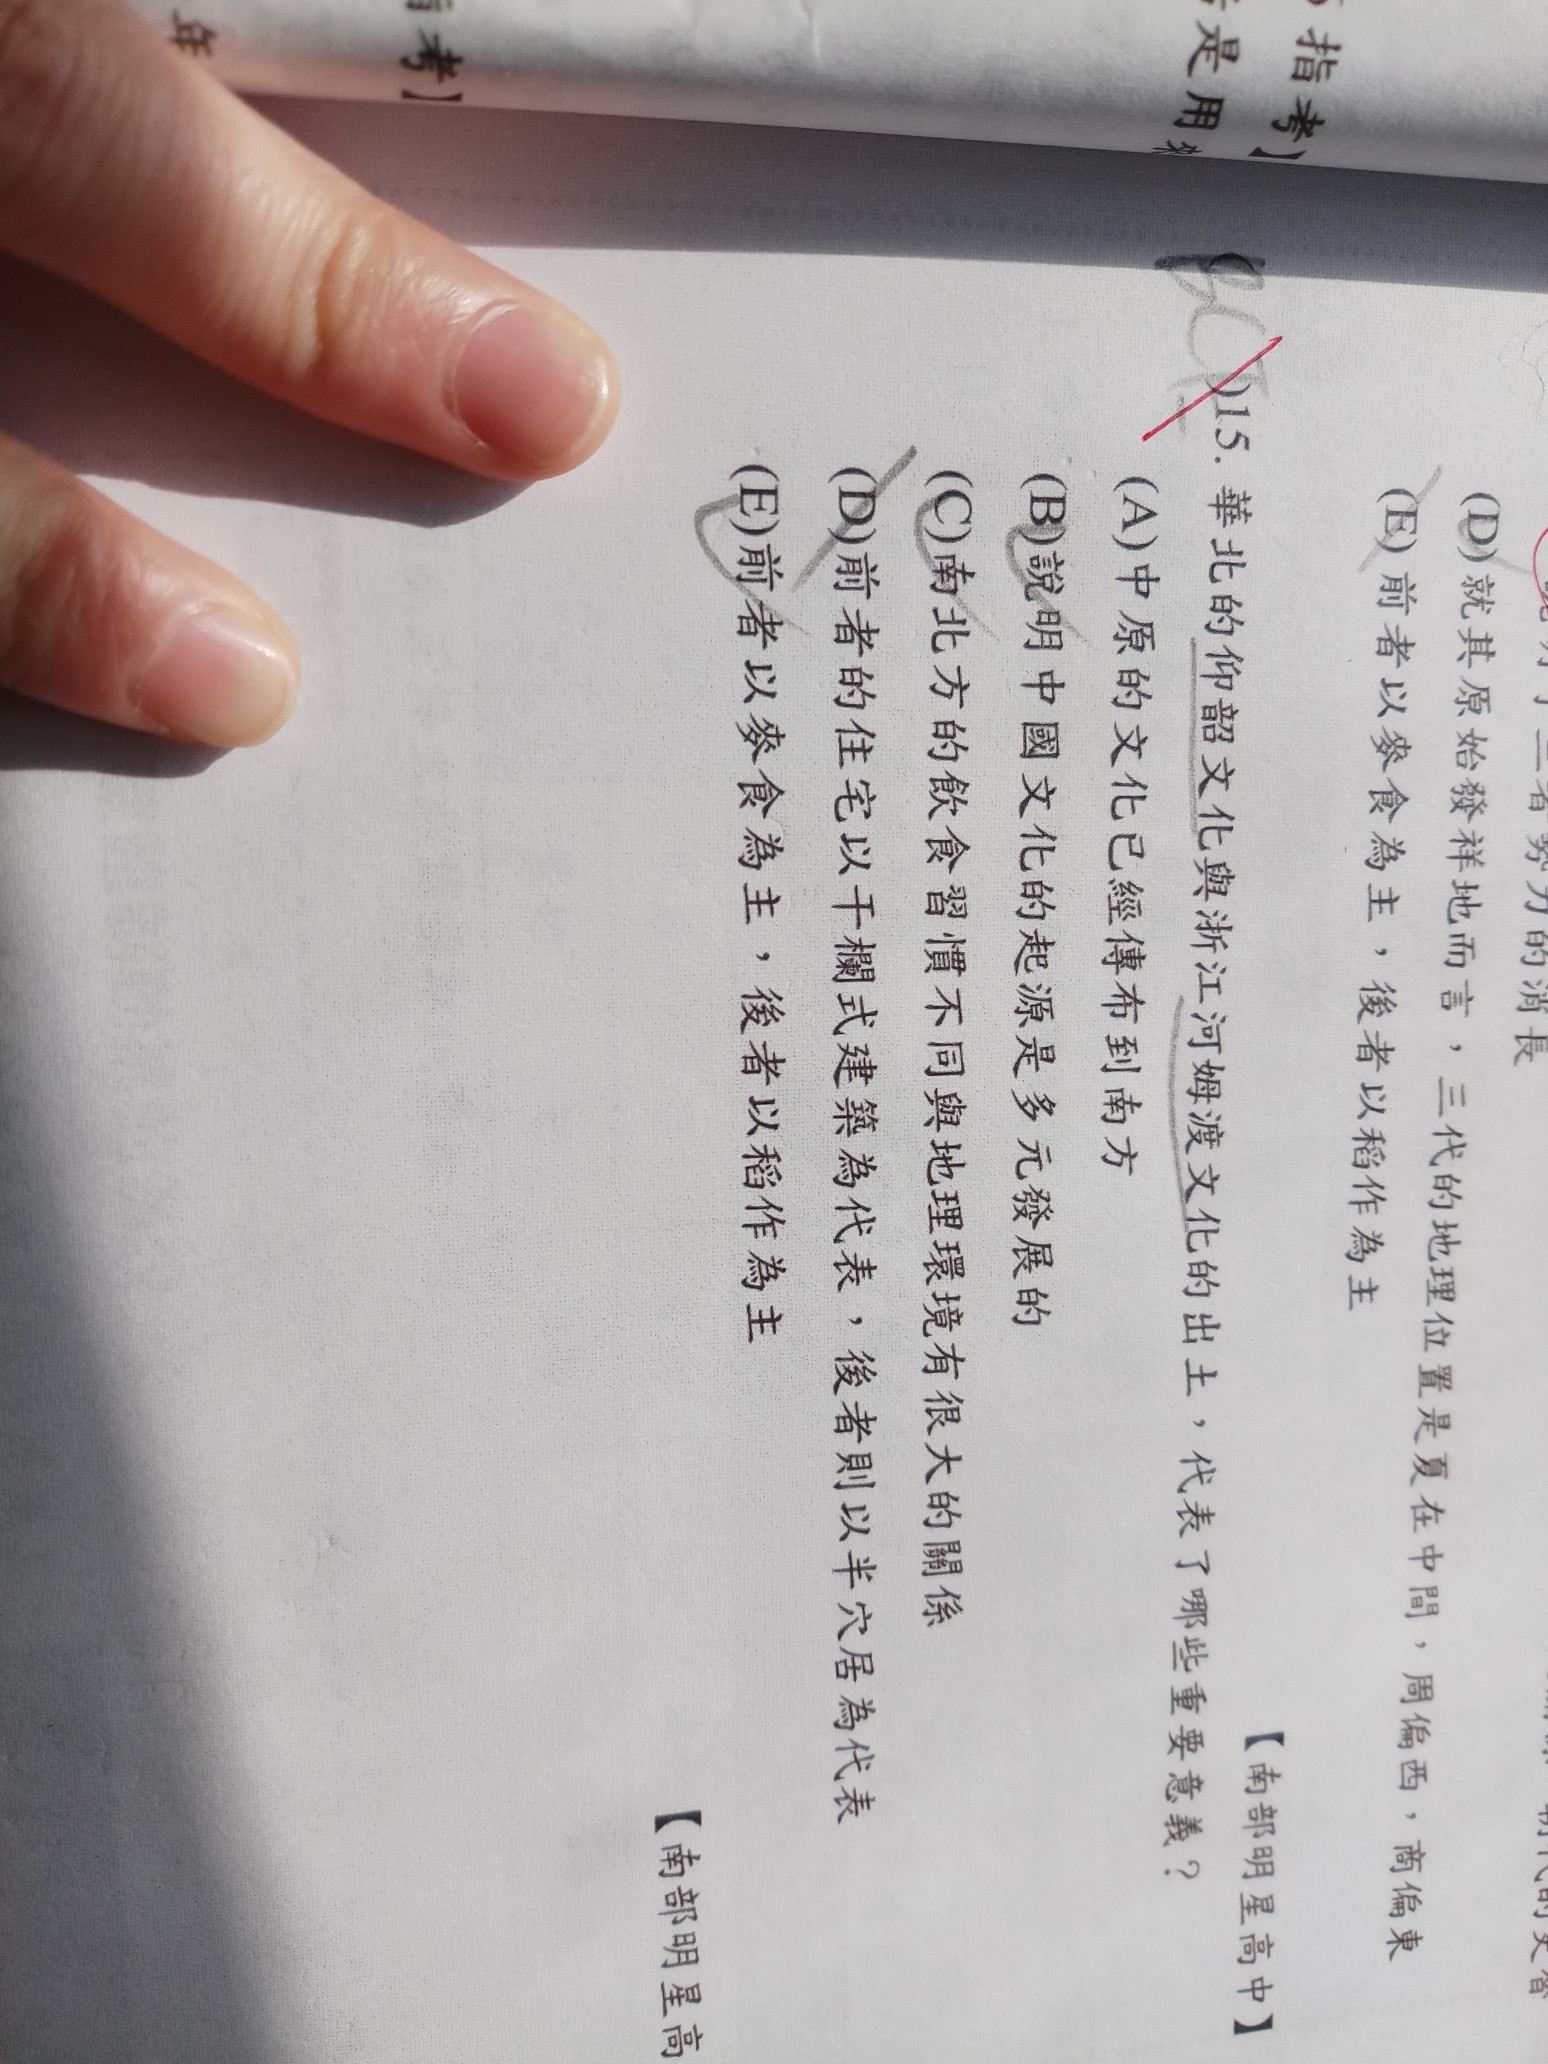 指考】
是用
有考】
年
勢力的消長
(D)就其原始發祥地而言，三代的地理位置是夏在中間，周偏西，商偏東
(E)前者以麥食為主，後者以稻作為主
【南部明星高中】
BCE
)15.華北的仰韶文化與浙江河姆渡文化的出土，代表了哪些重要意義？
(A)中原的文化已經傳布到南方
(B)說明中國文化的起源是多元發展的
(C)南北方的飲食習慣不同與地理環境有很大的關係
(D)前者的住宅以干欄式建築為代表，後者則以半穴居為代表
(E)前者以麥食為主，後者以稻作為主
【南部明星高